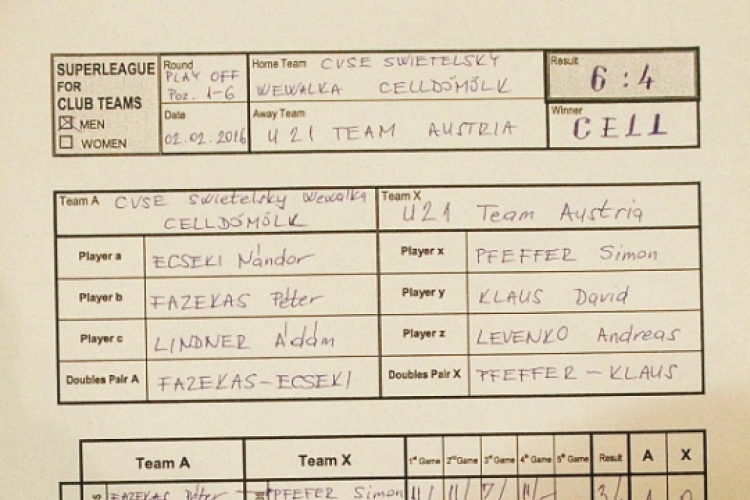 SUPERLEAGUE
FOR
CLUB TEAMS
☒ MEN
☐ WOMEN
Round
PLAY OFF
Poz. 1-6
Date
02.02.2016
Home Team CVSE SWIETELSKY
WEWALKA CELLDÖMÖLK
Away Team
U 21 TEAM AUSTRIA
Result
6 : 4
Winner
CELL
Team A CVSE Swietelsky Wewalka
CELLDÖMÖLK
Team X
U21 Team Austria
Player a ECSEKI Nándor
Player x PFEFFER Simon
Player b FAZEKAS Péter
Player y KLAUS David
Player c LINDNER Ádám
Player z LEVENKO Andreas
Doubles Pair A FAZEKAS-ECSEKI
Doubles Pair X PFEFFER - KLAUS
Team A Team X 1st Game 2nd Game 3rd Game 4th Game 5th Game Result A X
FAZEKAS Péter PFEFFER Simon 11/ 11/ 7/ 11/ 3/